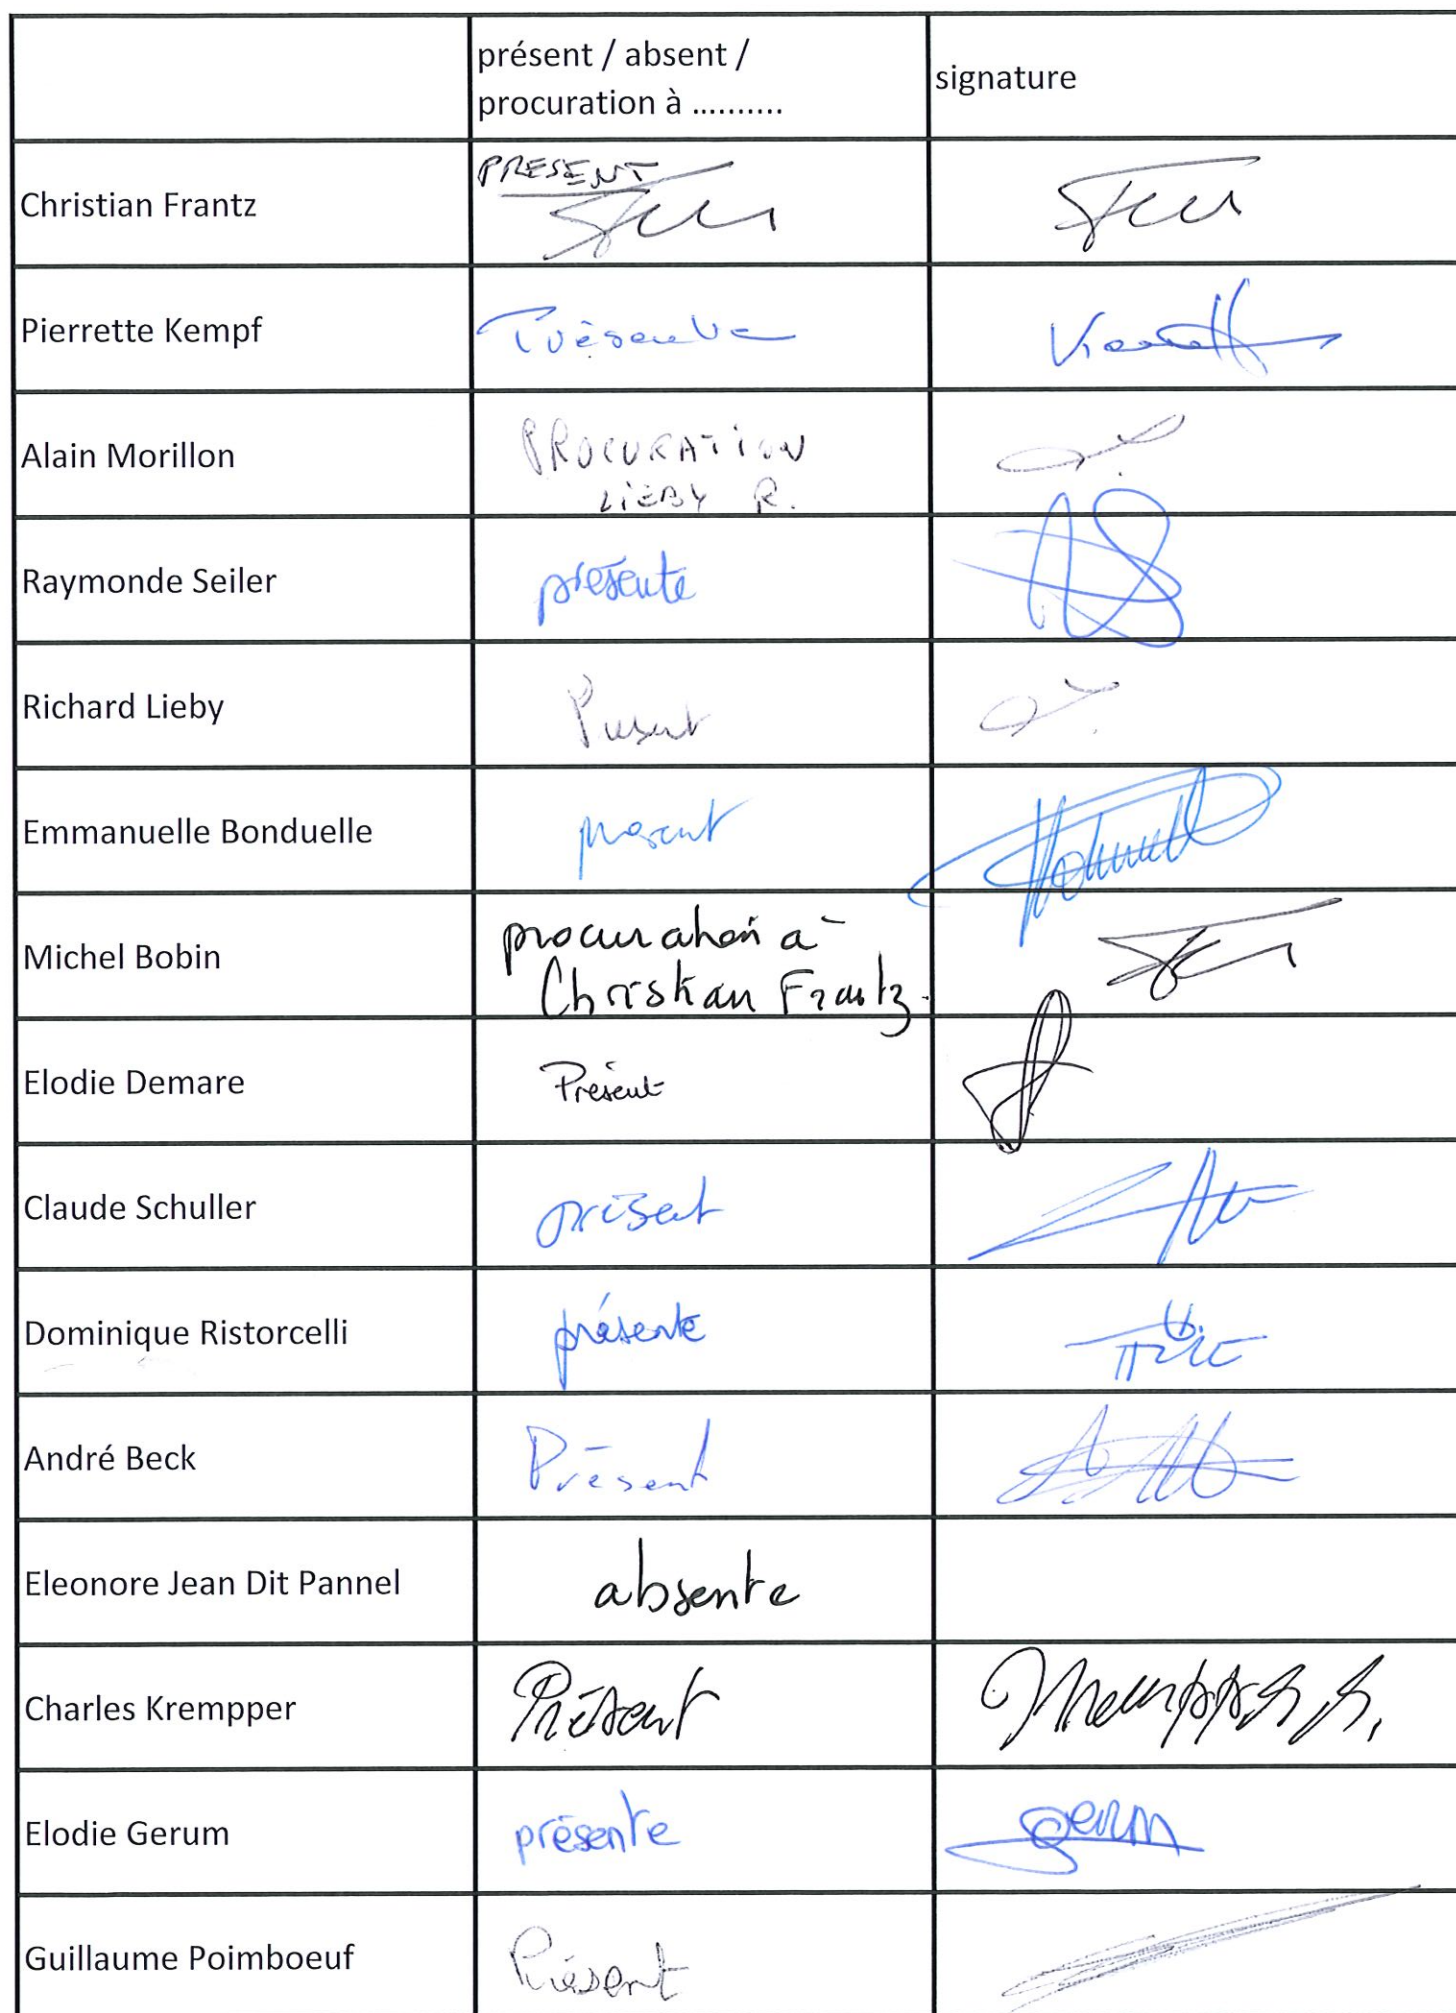 présent / absent /
procuration à ..........
signature
Christian Frantz
PRESENT
Pierrette Kempf
Présente
Alain Morillon
PROCURATION
LIEBY R.
Raymonde Seiler
présente
Richard Lieby
Présent
Emmanuelle Bonduelle
présent
Michel Bobin
procuration à
Christian Frantz.
Elodie Demare
Présent
Claude Schuller
présent
Dominique Ristorcelli
présente
André Beck
Présent
Eleonore Jean Dit Pannel
absente
Charles Krempper
Présent
Elodie Gerum
présente
gerum
Guillaume Poimboeuf
Présent